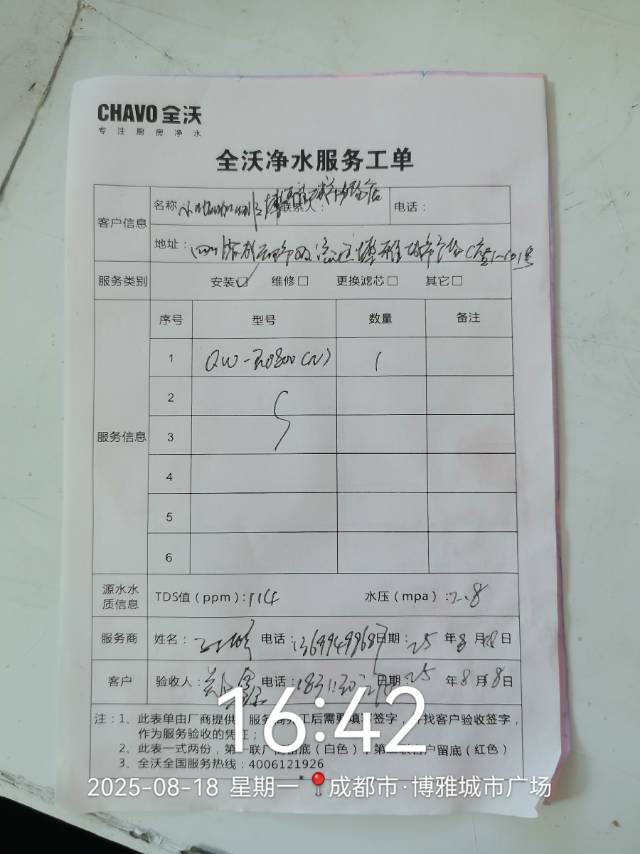 CHAVO 全沃
专注厨房净水
全沃净水服务工单
客户信息
名称 联系人： 电话：
地址： 博雅城市广场
服务类别 安装☑ 维修□ 更换滤芯□ 其它□
服务信息
序号 型号 数量 备注
1 QW- 800(N) 1
2
3
4
5
6
源水水质信息 TDS值（ppm）：114 水压（mpa）： 8
服务商 姓名： 电话： 日期：25 年 8 月 18 日
客户 验收人： 电话： 日期：25 年 8 月 18 日
注：1、此表单由厂商提供，服务商完工后需要填写签字，并找客户验收签字，
作为服务验收的凭证；
2、此表一式两份，第一联厂商留底（白色），第二联客户留底（红色）
3、全沃全国服务热线：4006121926
16:42
2025-08-18 星期一 成都市·博雅城市广场